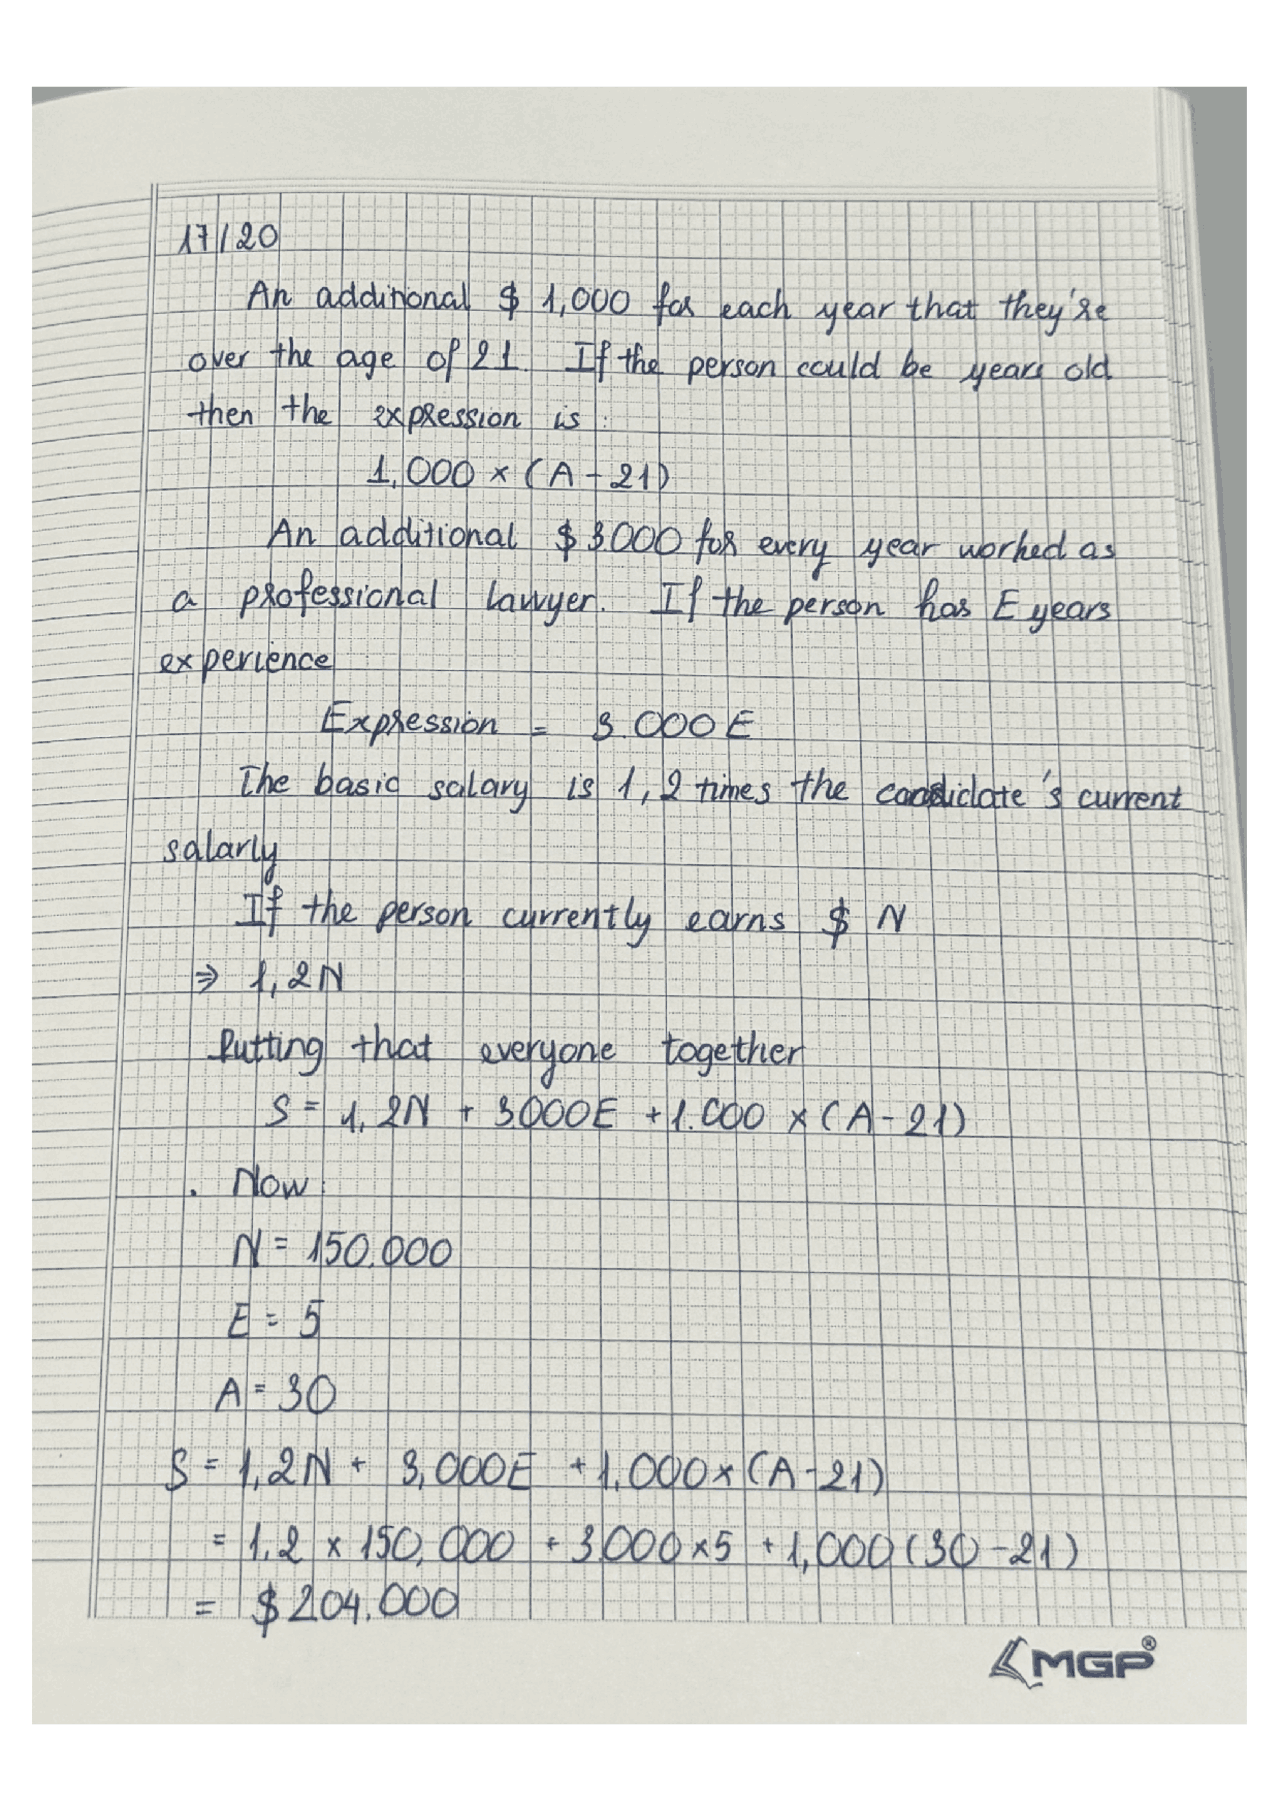 17/20
An additional $ 1,000 for each year that they're
over the age of 21. If the person could be years old
then the expression is:
1,000 × (A - 21)
An additional $ 3.000 for every year worked as
a professional lawyer. If the person has E years
experience
Expression = 3.000 E
The basic salary is 1,2 times the candidate's current
salarly
If the person currently earns $ N
⇒ 1,2N
Putting that everyone together
S = 1,2N + 3.000E + 1.000 × (A - 21)
. Now:
N = 150.000
E = 5
A = 30
S = 1,2N + 3,000E + 1.000 × (A - 21)
= 1,2 × 150,000 + 3.000 × 5 + 1,000 (30 - 21)
= $ 204.000
MGP®